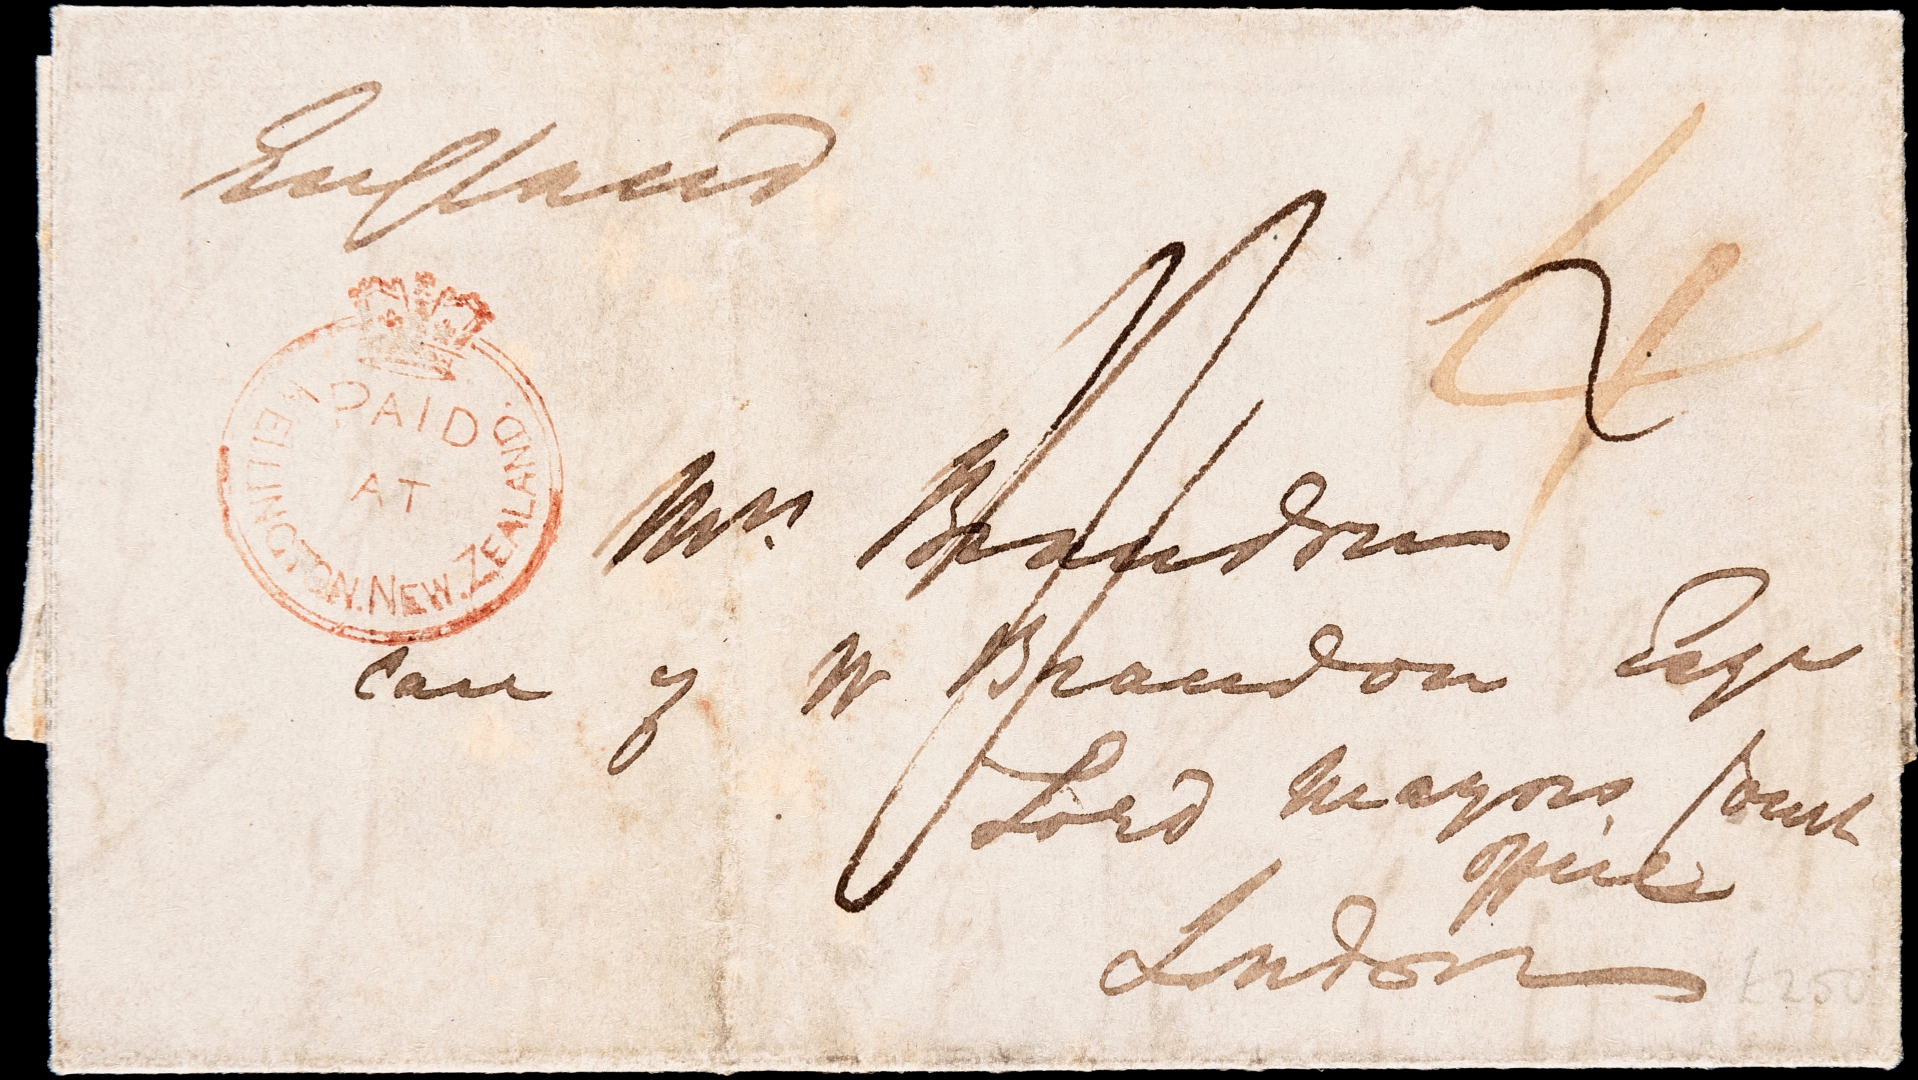 England
PAID
AT
WELLINGTON. NEW. ZEALAND.
4
Mrs Brandon
care of W Brandon Esqr
Lord Mayors Court
office
London
£250